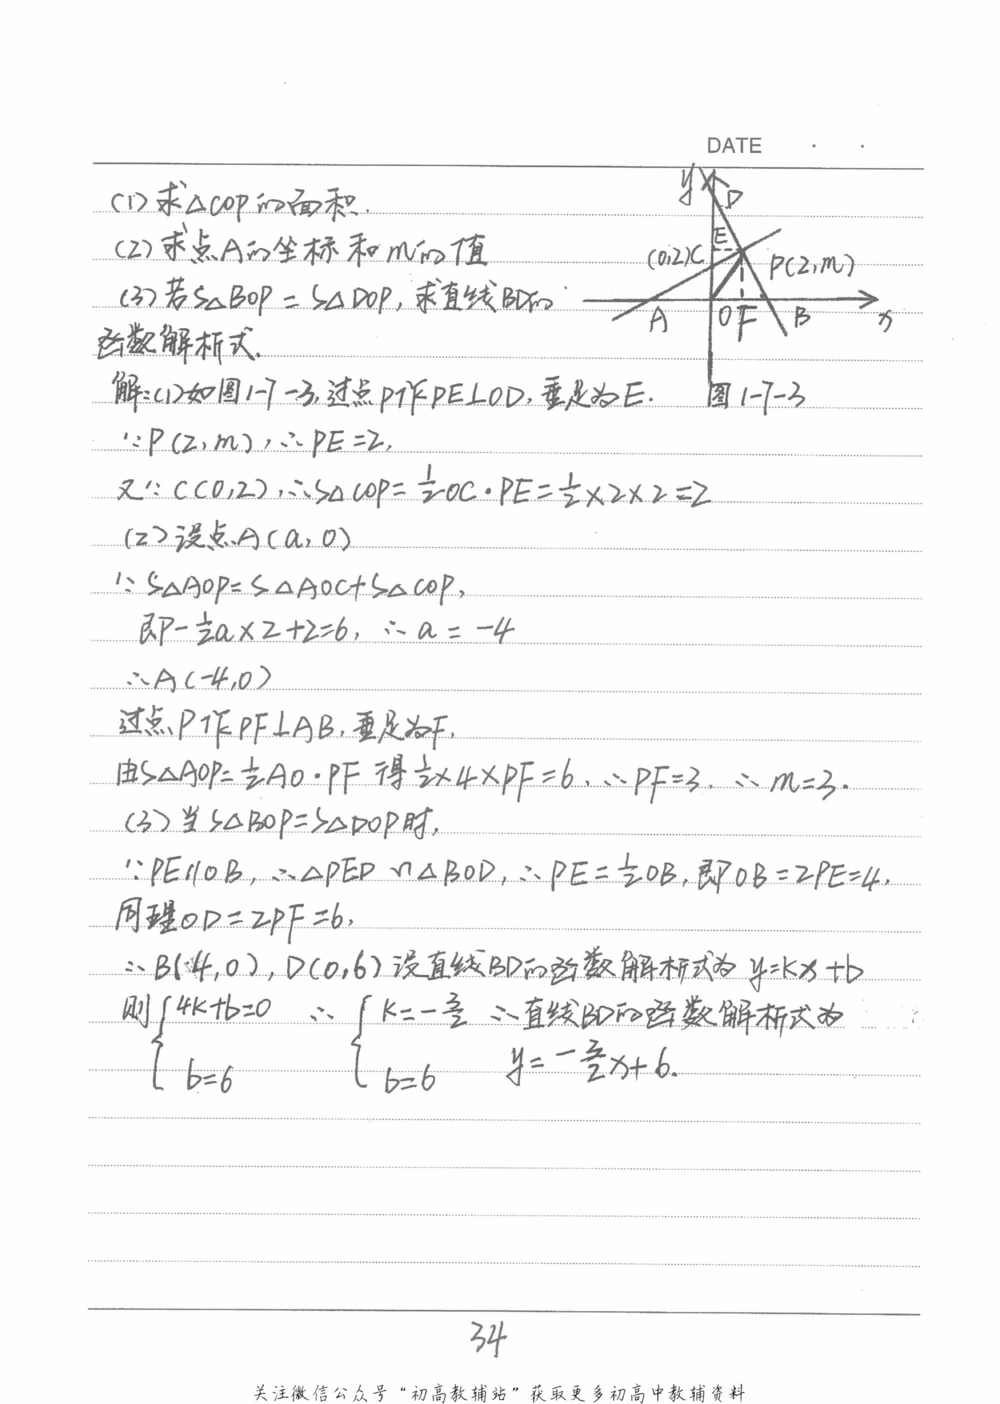 DATE · ·
(1)求△COP的面积.
(2)求点A的坐标和m的值
(3)若S△BOP=S△DOP,求直线BD的
函数解析式.
y
D
E
(0,2)C
P(2,m)
A
O
F
B
x
图1-7-3
解:(1)如图1-7-3,过点P作PE⊥OD,垂足为E.
∵P(2,m),∴PE=2,
又∵C(0,2),∴S△COP=½OC·PE=½×2×2=2
(2)设点A(a,0)
∵S△AOP=S△AOC+S△COP,
即-½a×2+2=6,∴a=-4
∴A(-4,0)
过点P作PF⊥AB,垂足为F,
由S△AOP=½AO·PF 得½×4×PF=6,∴PF=3,∴m=3.
(3)当S△BOP=S△DOP时,
∵PE∥OB,∴△PED∽△BOD,∴PE=½OB,即OB=2PE=4,
同理OD=2PF=6,
∴B(4,0),D(0,6)设直线BD的函数解析式为y=kx+b
则{4k+b=0 ∴{k=-3/2 ∴直线BD的函数解析式为
b=6 b=6 y=-3/2x+6.
34
关注微信公众号"初高教辅站"获取更多初高中教辅资料